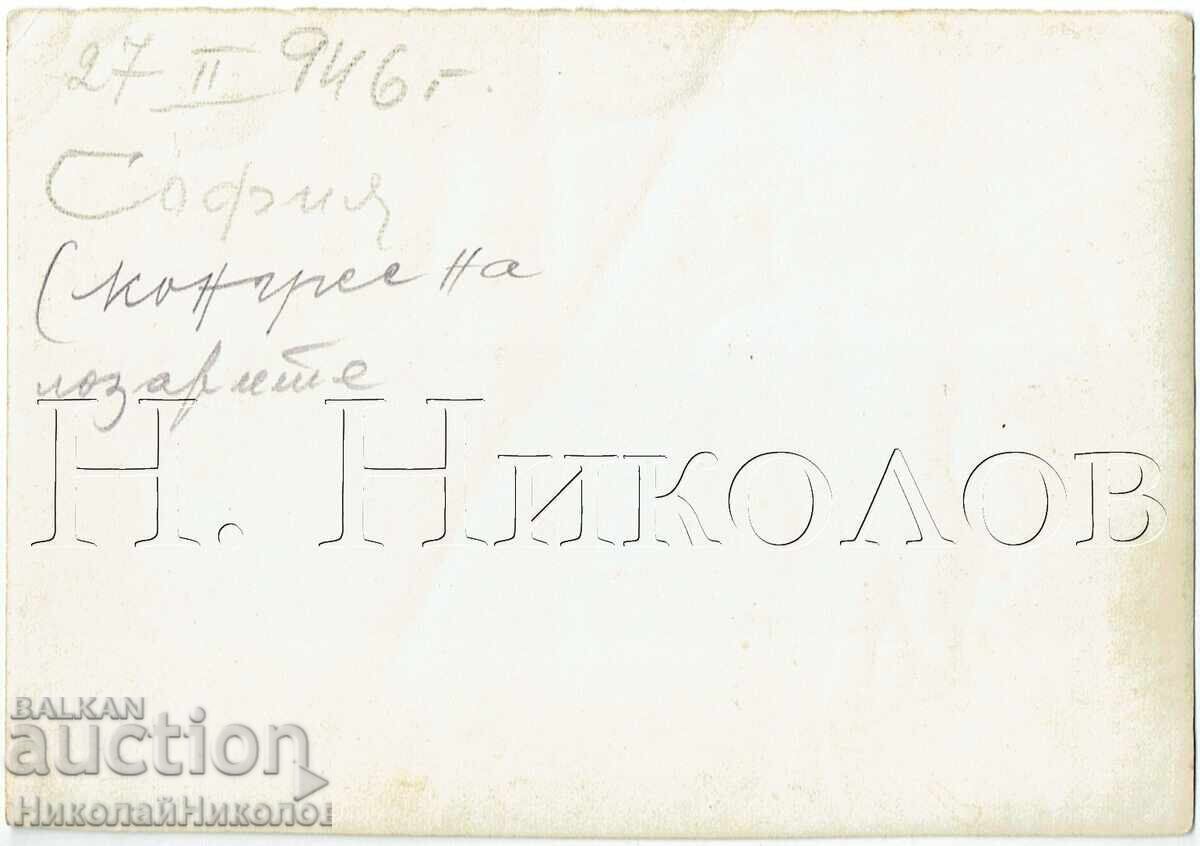 27 II 946 г.
София
(конгрес на
лозарите
Н. Николов
BALKAN
auction
НиколайНиколов